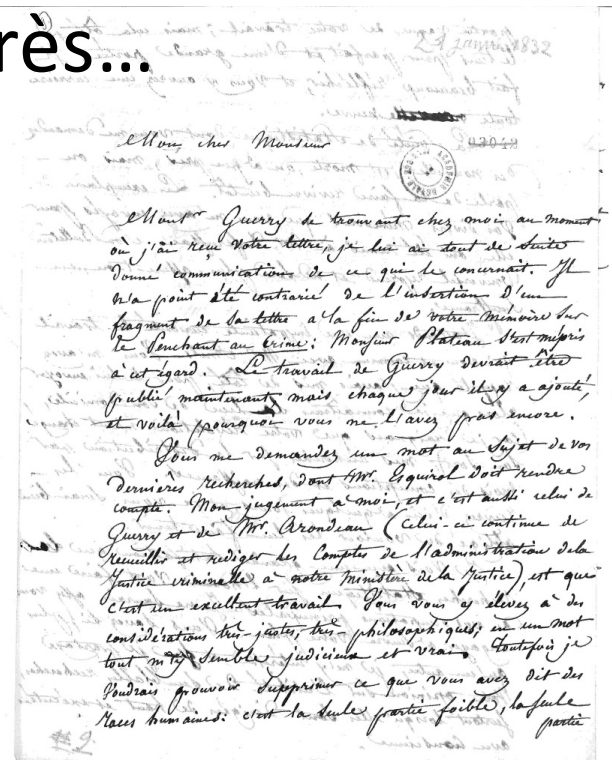 rès...
21 janvier 1832
Mon cher Monsieur
03042
ACADEMIE ROYALE
Monsr Guerry se trouvant chez moi au moment
où j'ai reçu votre lettre, je lui ai tout de suite
donné communication de ce qui le concernait. Il
n'a point été contrarié de l'insertion d'un
fragment de sa lettre a la fin de votre mémoire sur
le Penchant au Crime : Monsieur Plateau s'est mépris
à cet égard. Le travail de Guerry devrait être
publié maintenant, mais chaque jour il y a ajouté,
et voilà pourquoi vous ne l'avez pas encore.
Vous me demandez un mot au sujet de vos
dernières recherches, dont Mr. Esquirol doit rendre
compte. Mon jugement à moi, et c'est aussi celui de
Guerry et de Mr. Arondeau (celui-ci continue de
recueillir et rediger les Comptes de l'administration dela
Justice criminelle à notre ministère dela Justice), est que
c'est un excellent travail. Vous vous y élevez à des
considérations très-justes, très-philosophiques; en un mot
tout m'y semble judicieux et vrai. Toutefois je
voudrais pouvoir supprimer ce que vous avez dit des
races humaines: c'est la seule partie foible, la seule
partie